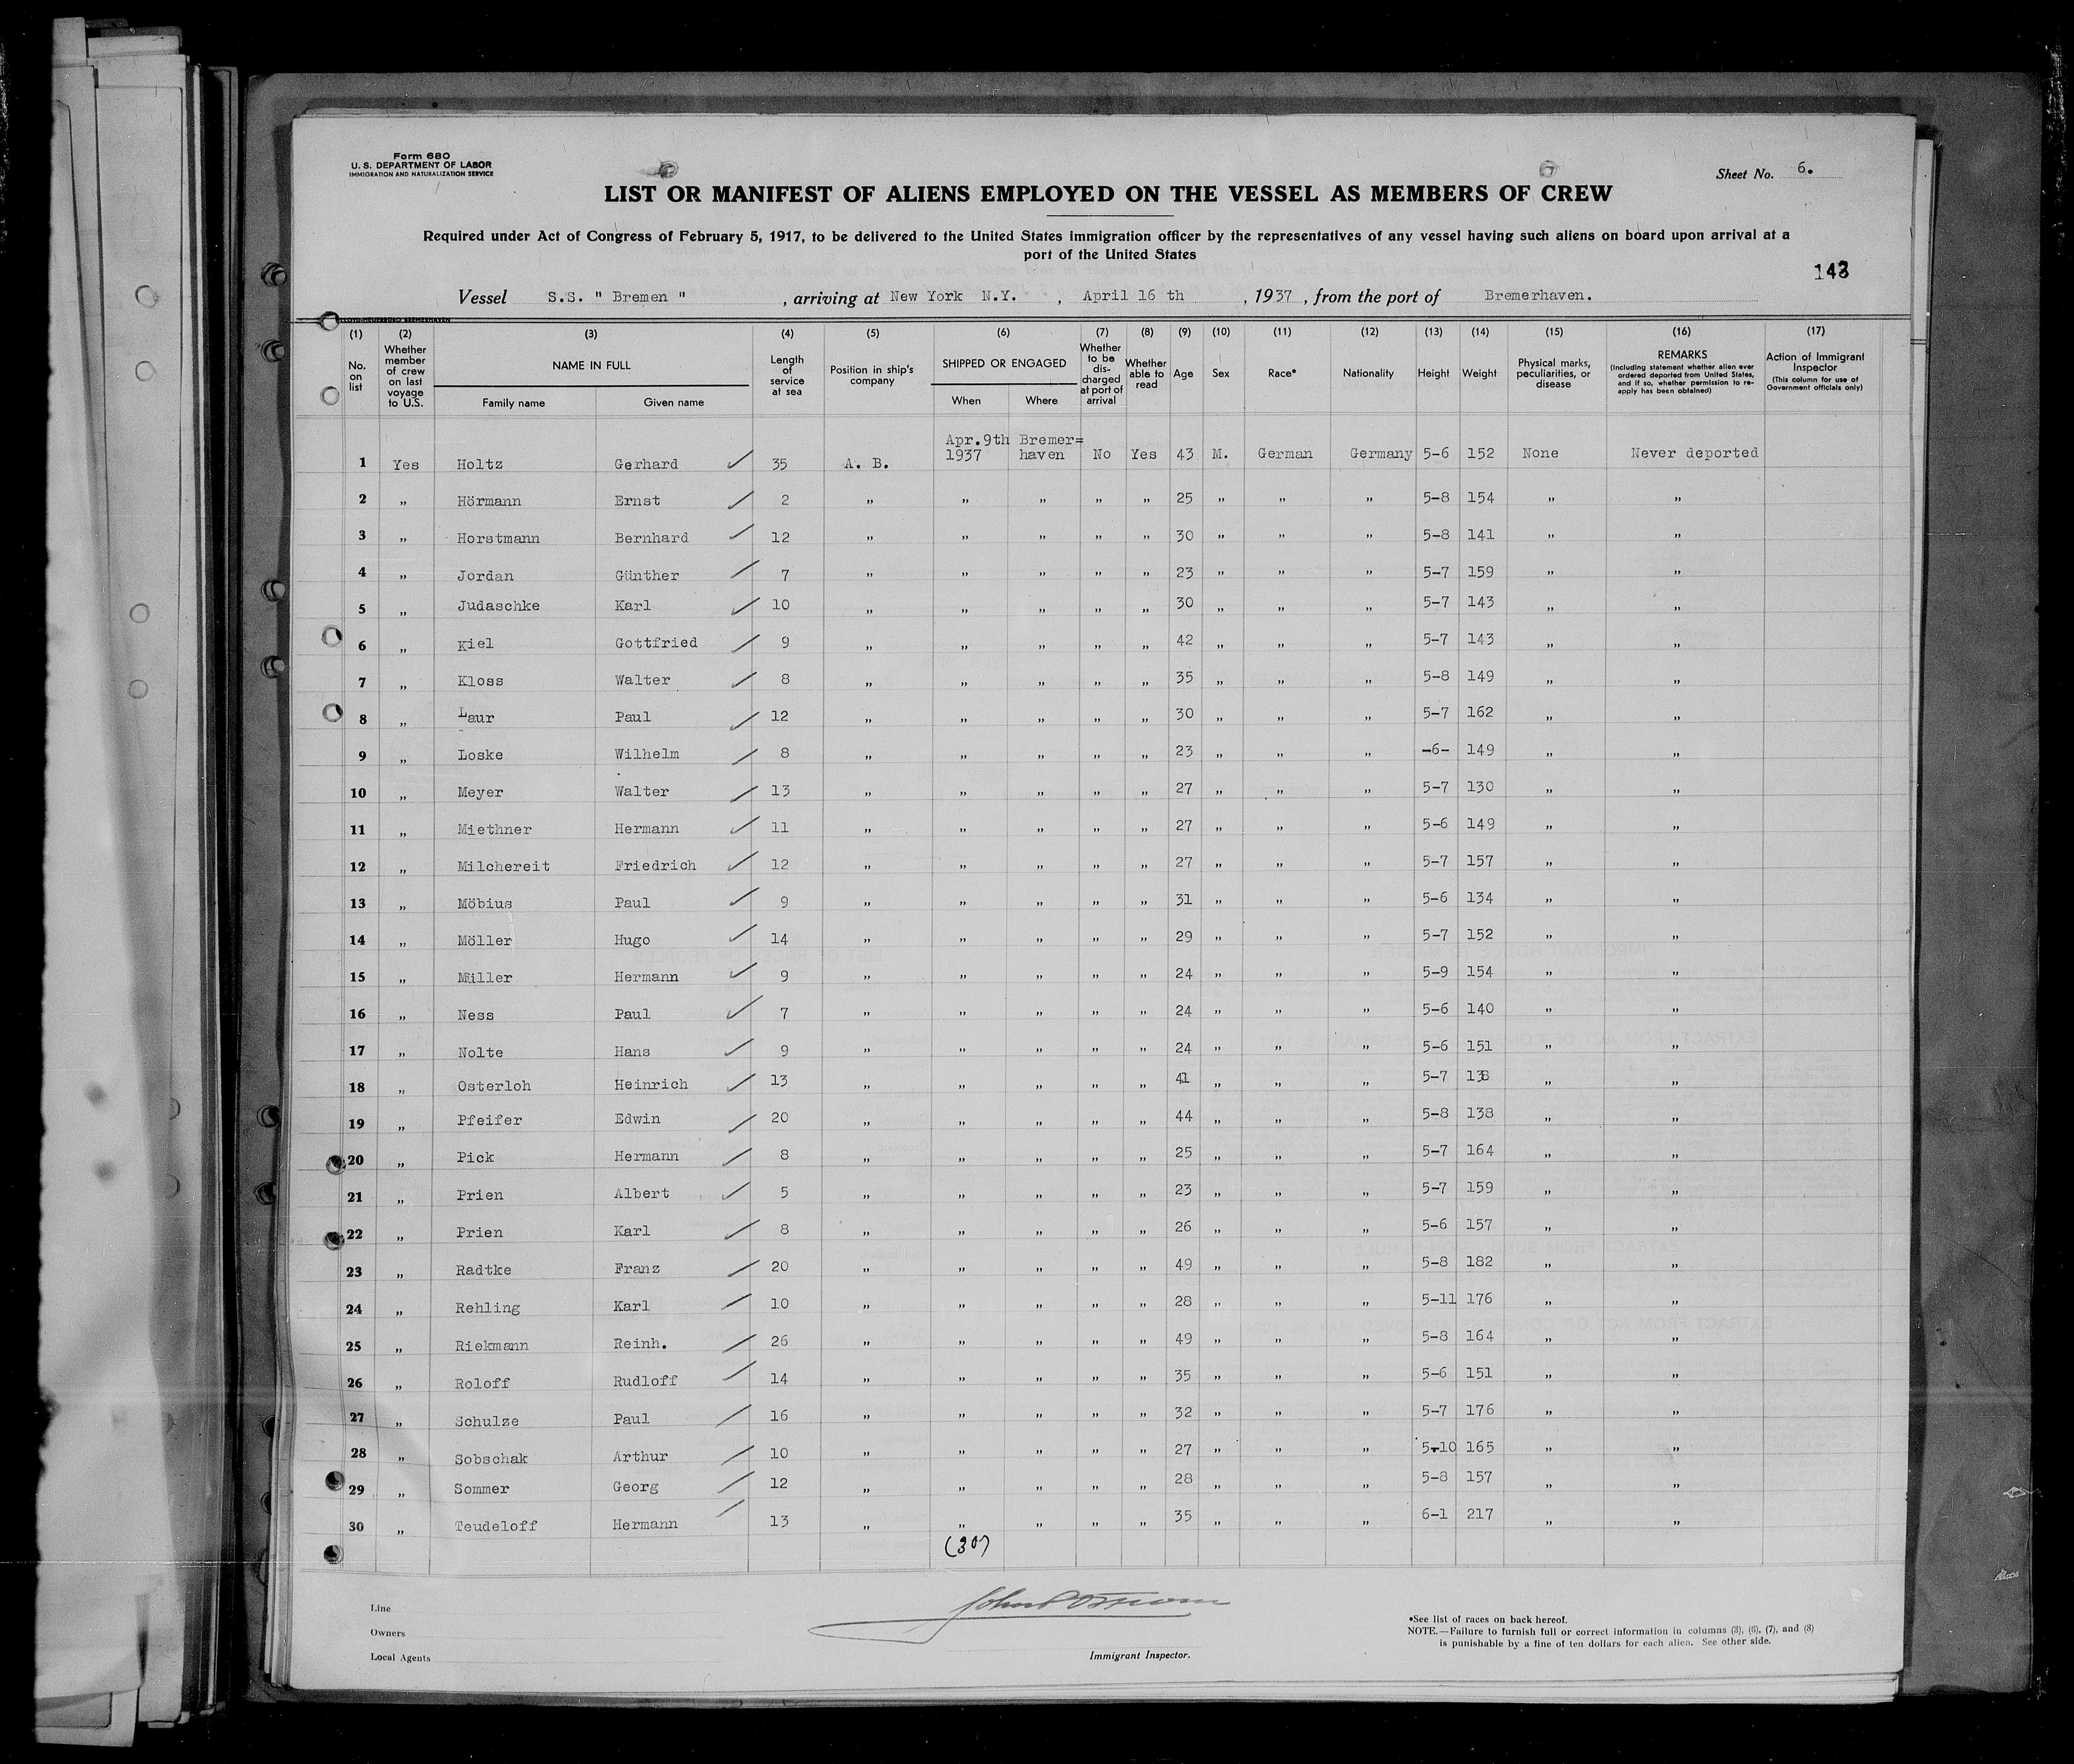 Form 680
U. S. DEPARTMENT OF LABOR
IMMIGRATION AND NATURALIZATION SERVICE
Sheet No. 6.
LIST OR MANIFEST OF ALIENS EMPLOYED ON THE VESSEL AS MEMBERS OF CREW
Required under Act of Congress of February 5, 1917, to be delivered to the United States immigration officer by the representatives of any vessel having such aliens on board upon arrival at a
port of the United States
143
Vessel S.S. " Bremen " , arriving at New York N.Y. , April 16 th , 1937 , from the port of Bremerhaven.
(1) (2) (3) (4) (5) (6) (7) (8) (9) (10) (11) (12) (13) (14) (15) (16) (17)
No. on list Whether member of crew on last voyage to U.S. NAME IN FULL Family name Given name Length of service at sea Position in ship's company SHIPPED OR ENGAGED When Where Whether to be discharged at port of arrival Whether able to read Age Sex Race* Nationality Height Weight Physical marks, peculiarities, or disease REMARKS (Including statement whether alien ever ordered deported from United States, and if so, whether permission to reapply has been obtained) Action of Immigrant Inspector (This column for use of Government officials only)
1 Yes Holtz Gerhard 35 A. B. Apr.9th 1937 Bremer= haven No Yes 43 M. German Germany 5-6 152 None Never deported
2 " Hörmann Ernst 2 " " " " " 25 " " " 5-8 154 " "
3 " Horstmann Bernhard 12 " " " " " 30 " " " 5-8 141 " "
4 " Jordan Günther 7 " " " " " 23 " " " 5-7 159 " "
5 " Judaschke Karl 10 " " " " " 30 " " " 5-7 143 " "
6 " Kiel Gottfried 9 " " " " " 42 " " " 5-7 143 " "
7 " Kloss Walter 8 " " " " " 35 " " " 5-8 149 " "
8 " Laur Paul 12 " " " " " 30 " " " 5-7 162 " "
9 " Loske Wilhelm 8 " " " " " 23 " " " -6- 149 " "
10 " Meyer Walter 13 " " " " " 27 " " " 5-7 130 " "
11 " Miethner Hermann 11 " " " " " 27 " " " 5-6 149 " "
12 " Milchereit Friedrich 12 " " " " " 27 " " " 5-7 157 " "
13 " Möbius Paul 9 " " " " " 31 " " " 5-6 134 " "
14 " Möller Hugo 14 " " " " " 29 " " " 5-7 152 " "
15 " Müller Hermann 9 " " " " " 24 " " " 5-9 154 " "
16 " Ness Paul 7 " " " " " 24 " " " 5-6 140 " "
17 " Nolte Hans 9 " " " " " 24 " " " 5-6 151 " "
18 " Osterloh Heinrich 13 " " " " " 41 " " " 5-7 138 " "
19 " Pfeifer Edwin 20 " " " " " 44 " " " 5-8 138 " "
20 " Pick Hermann 8 " " " " " 25 " " " 5-7 164 " "
21 " Prien Albert 5 " " " " " 23 " " " 5-7 159 " "
22 " Prien Karl 8 " " " " " 26 " " " 5-6 157 " "
23 " Radtke Franz 20 " " " " " 49 " " " 5-8 182 " "
24 " Rehling Karl 10 " " " " " 28 " " " 5-11 176 " "
25 " Riekmann Reinh. 26 " " " " " 49 " " " 5-8 164 " "
26 " Roloff Rudloff 14 " " " " " 35 " " " 5-6 151 " "
27 " Schulze Paul 16 " " " " " 32 " " " 5-7 176 " "
28 " Sobschak Arthur 10 " " " " " 27 " " " 5-10 165 " "
29 " Sommer Georg 12 " " " " " 28 " " " 5-8 157 " "
30 " Teudeloff Hermann 13 " " " " " 35 " " " 6-1 217 " "
(30)
Line
Owners
Local Agents
Immigrant Inspector.
*See list of races on back hereof.
NOTE.—Failure to furnish full or correct information in columns (3), (6), (7), and (8)
is punishable by a fine of ten dollars for each alien. See other side.